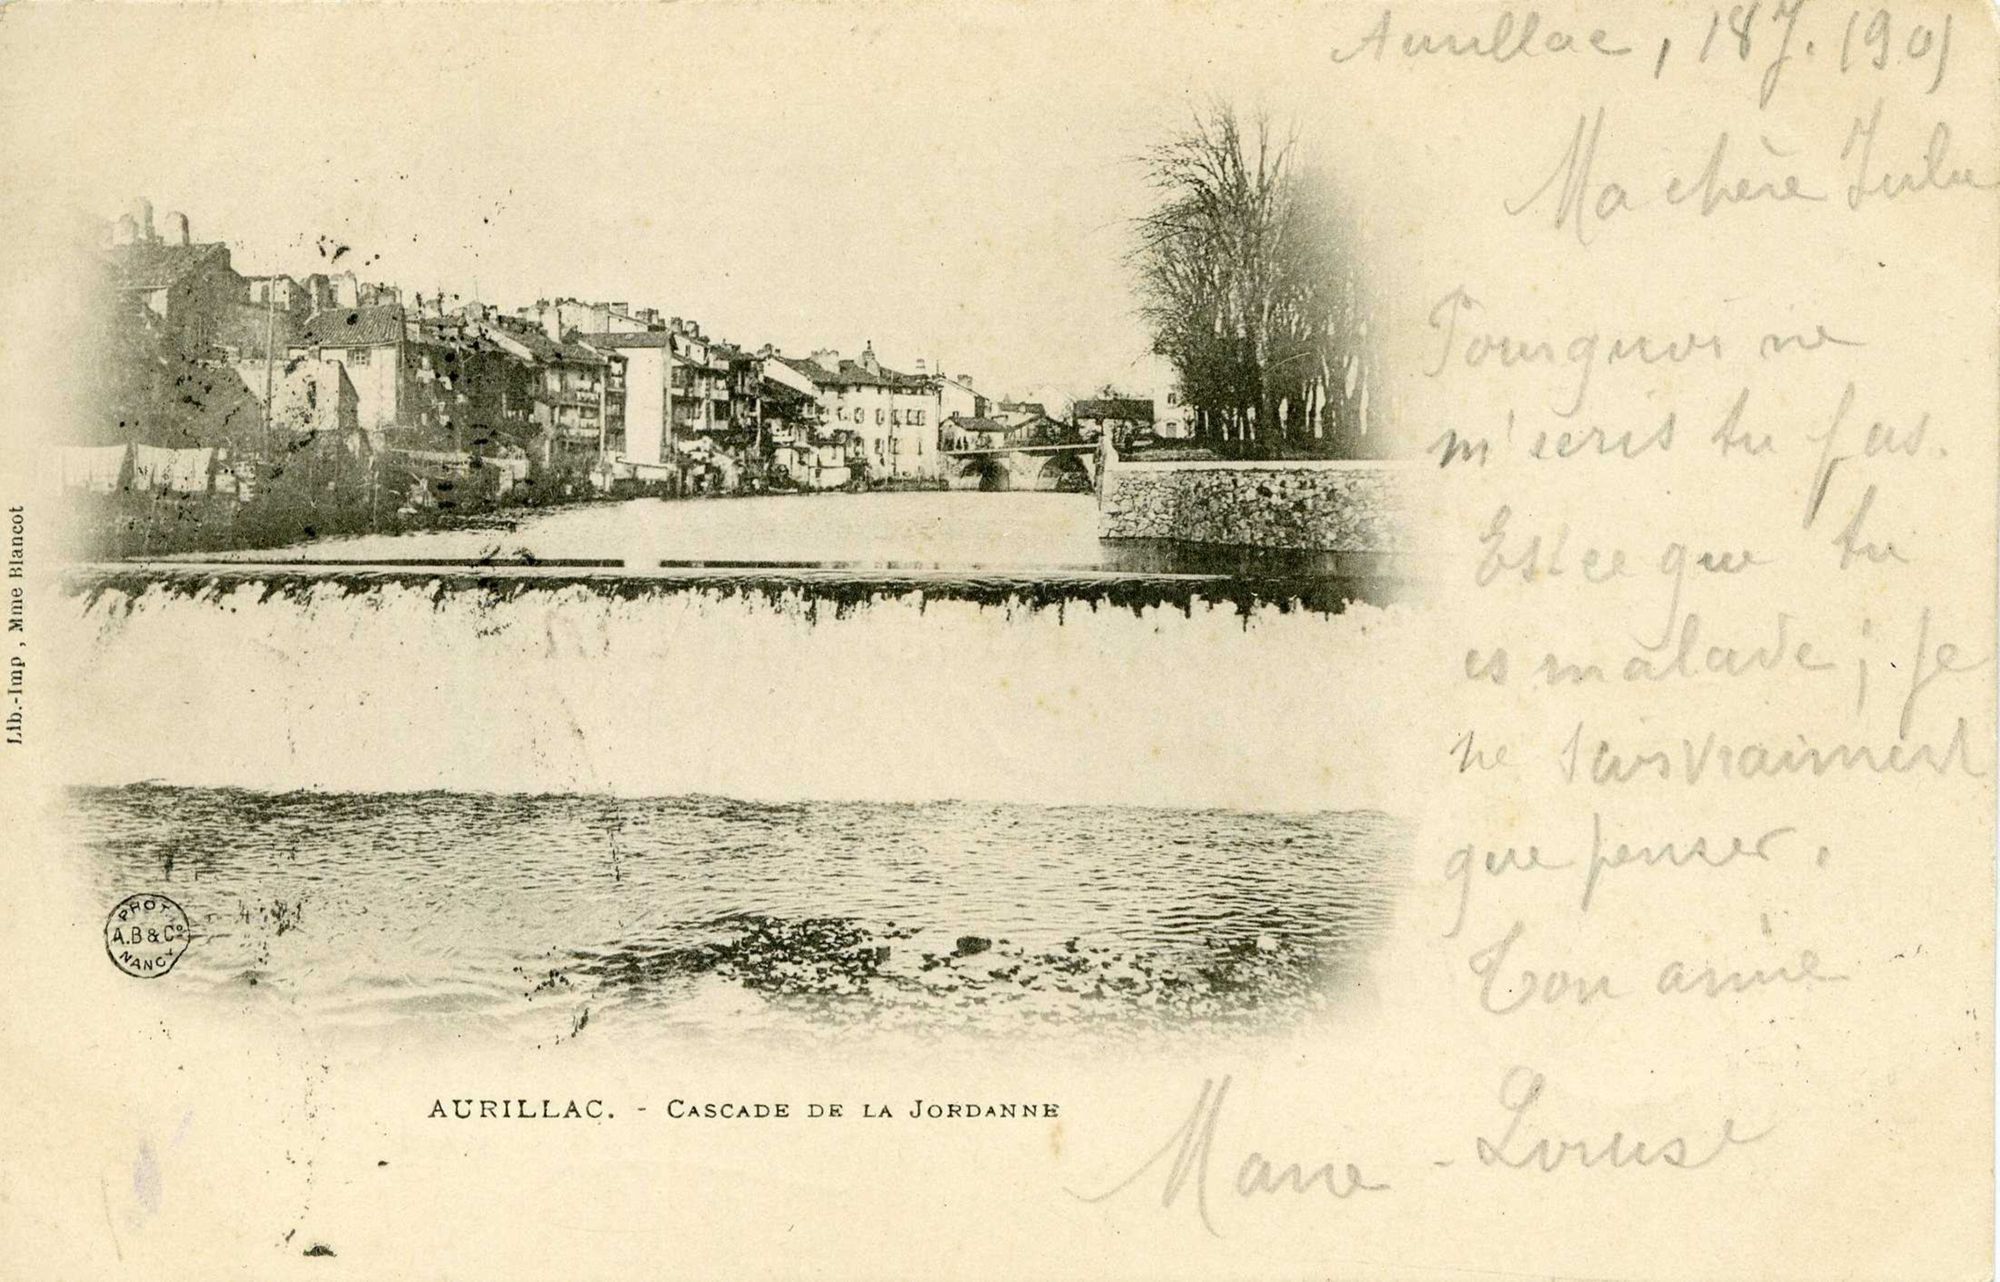 Aurillac, 187.1901
Ma chère Lulu
Pourquoi ne
m'ecris tu pas.
Est ce que tu
es malade; je
ne sais vraiment
que penser.
Ton amie
Marie-Louise
Lib.-Imp, Mme Blancot
PHOT.
A.B & Co
NANCY
AURILLAC. - CASCADE DE LA JORDANNE